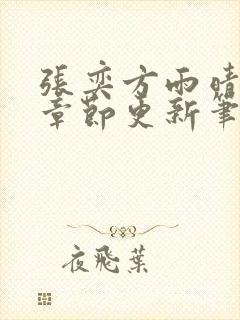 張奕方雨晴
章節更新筆
夜飛葉